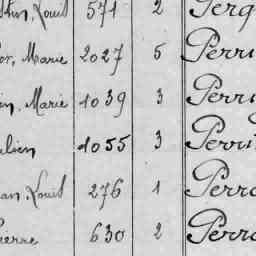 Louis 571 2 Perq
Marie 2027 5 Perri
in, Marie 1039 3 Perri
ulien 1055 3 Perri
an, Louis 276 1 Perro
ierre 630 2 Perro